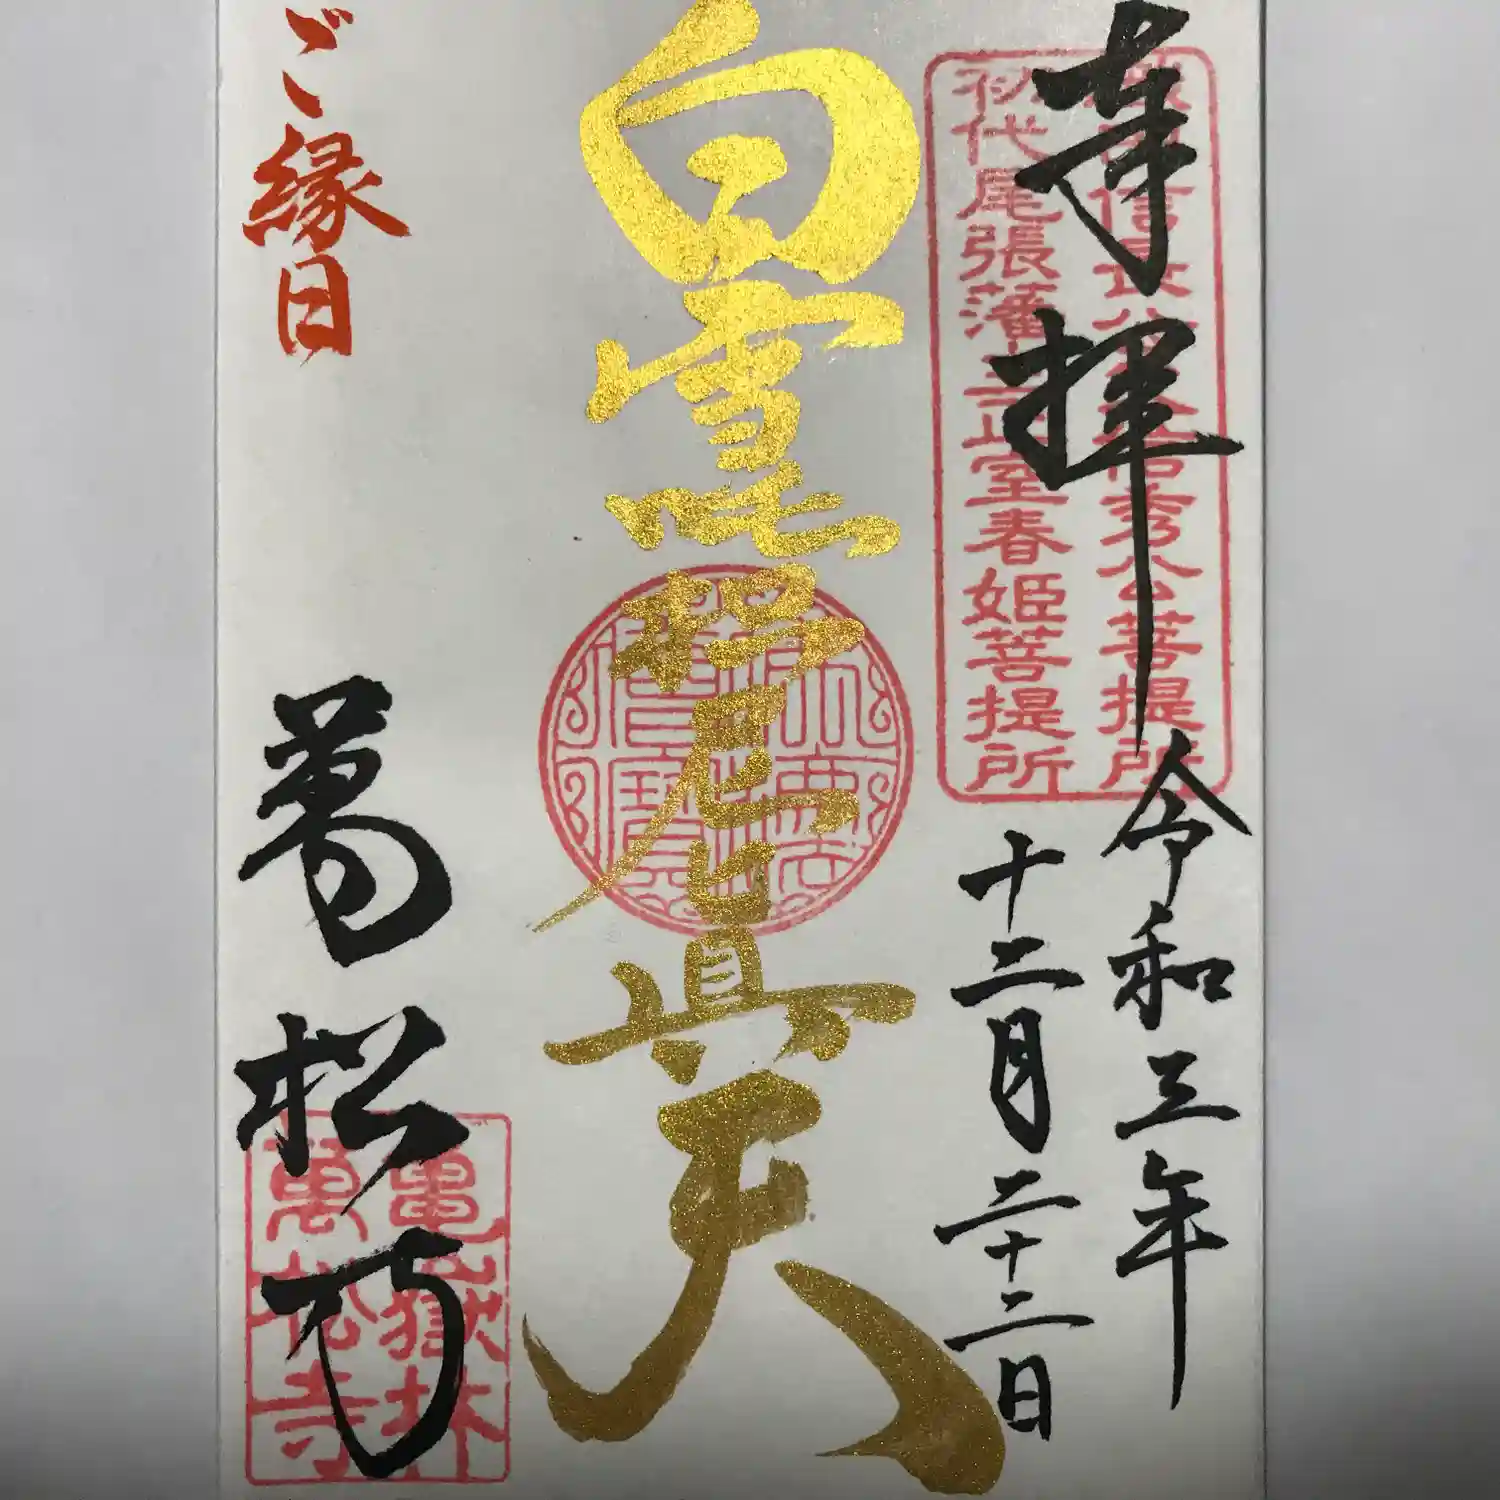 奉拝
令和三年
十二月二十二日
信長公
秀公菩提所
初代尾張藩主正室春姫菩提所
白雪吒枳尼眞天
ご縁日
萬松寺
龜嶽林
萬松寺